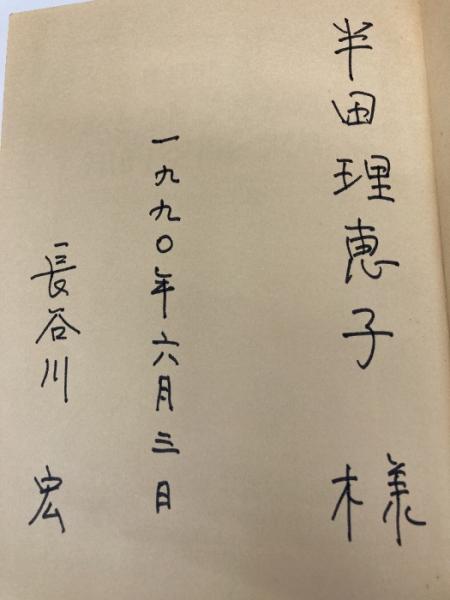 半田理恵子 様
一九九〇年六月三日
長谷川 宏